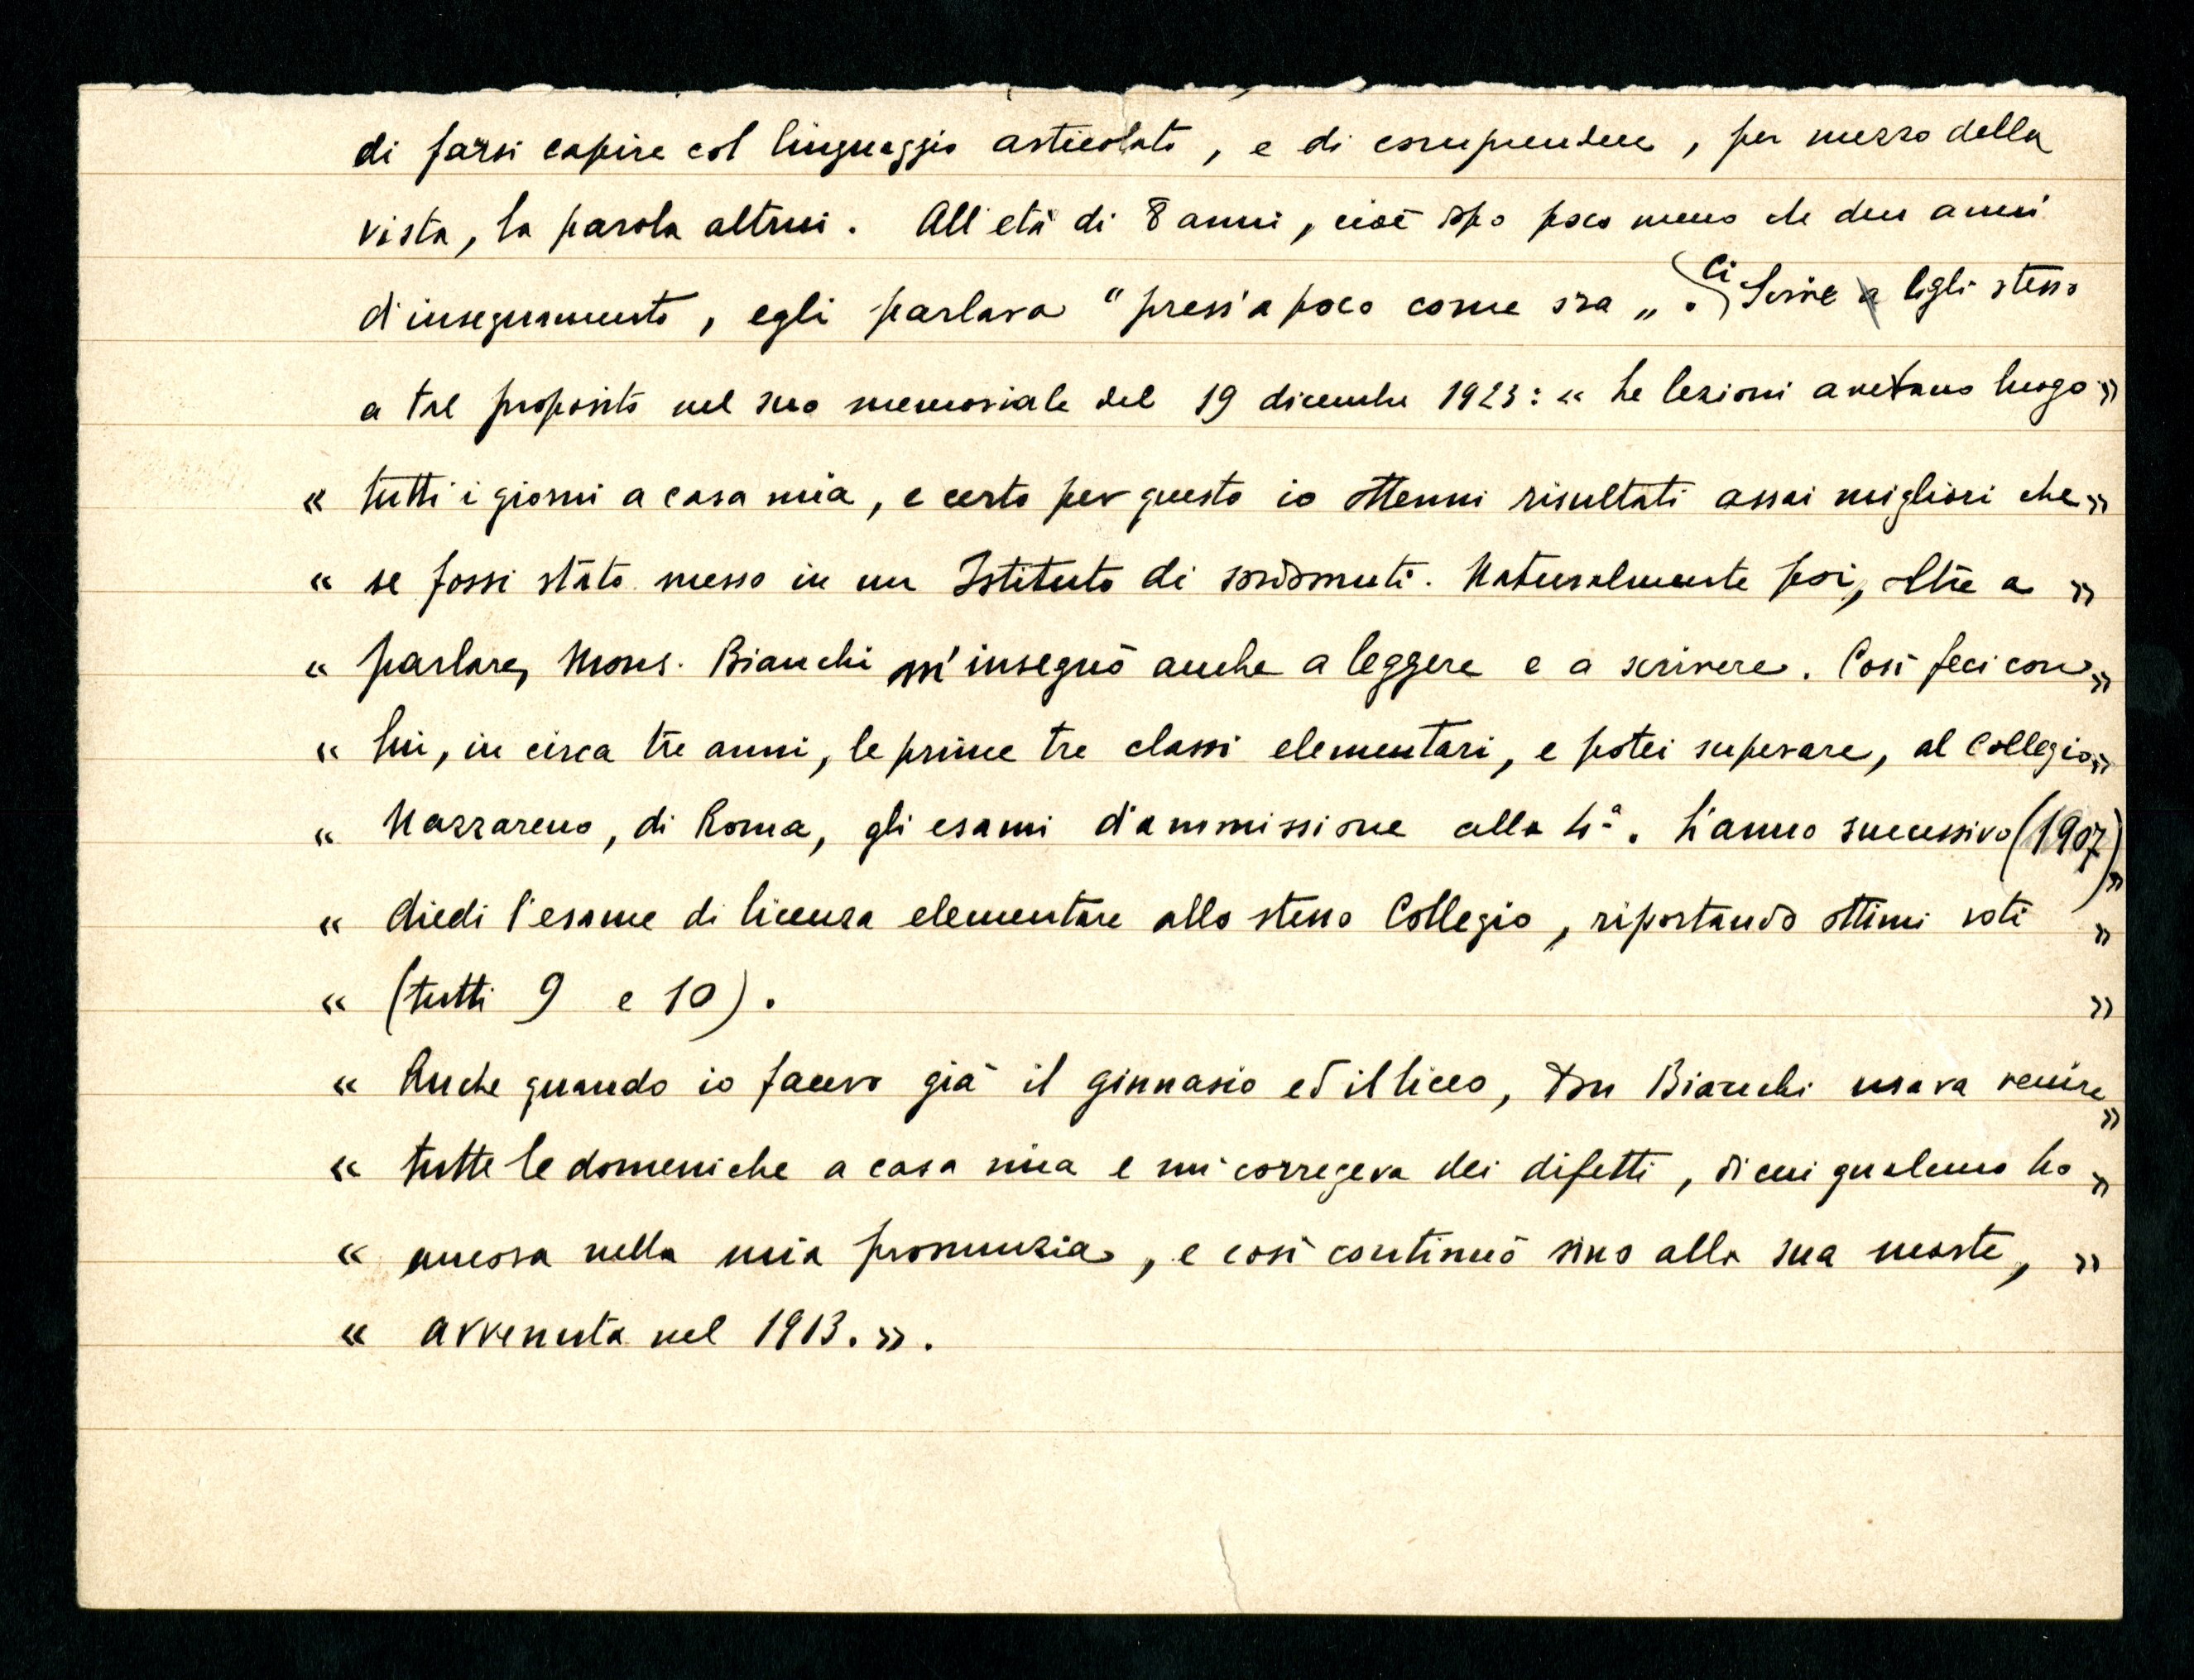 di farsi capire col linguaggio articolato, e di comprendere, per mezzo della
vista, la parola altrui. All'età di 8 anni, cioè dopo poco meno di due anni
d'insegnamento, egli parlava "press'a poco come ora„. Ci Scrive Egli stesso
a tal proposito nel suo memoriale del 19 dicembre 1923: « Le lezioni avevano luogo »
« tutti i giorni a casa mia, e certo per questo io ottenni risultati assai migliori che »
« se fossi stato messo in un Istituto di sordomuti. Naturalmente poi, oltre a »
« parlare, Mons. Bianchi m'insegnò anche a leggere e a scrivere. Così feci con »
« lui, in circa tre anni, le prime tre classi elementari, e potei superare, al Collegio »
« Nazzareno, di Roma, gli esami d'ammissione alla 4ª. L'anno successivo (1907) »
« diedi l'esame di licenza elementare allo stesso Collegio, riportando ottimi voti »
« (tutti 9 e 10). »
« Anche quando io facevo già il ginnasio ed il liceo, Don Bianchi usava venire »
« tutte le domeniche a casa mia e mi correggeva dei difetti, di cui qualcuno ho »
« ancora nella mia pronunzia, e così continuò sino alla sua morte, »
« avvenuta nel 1913. ».